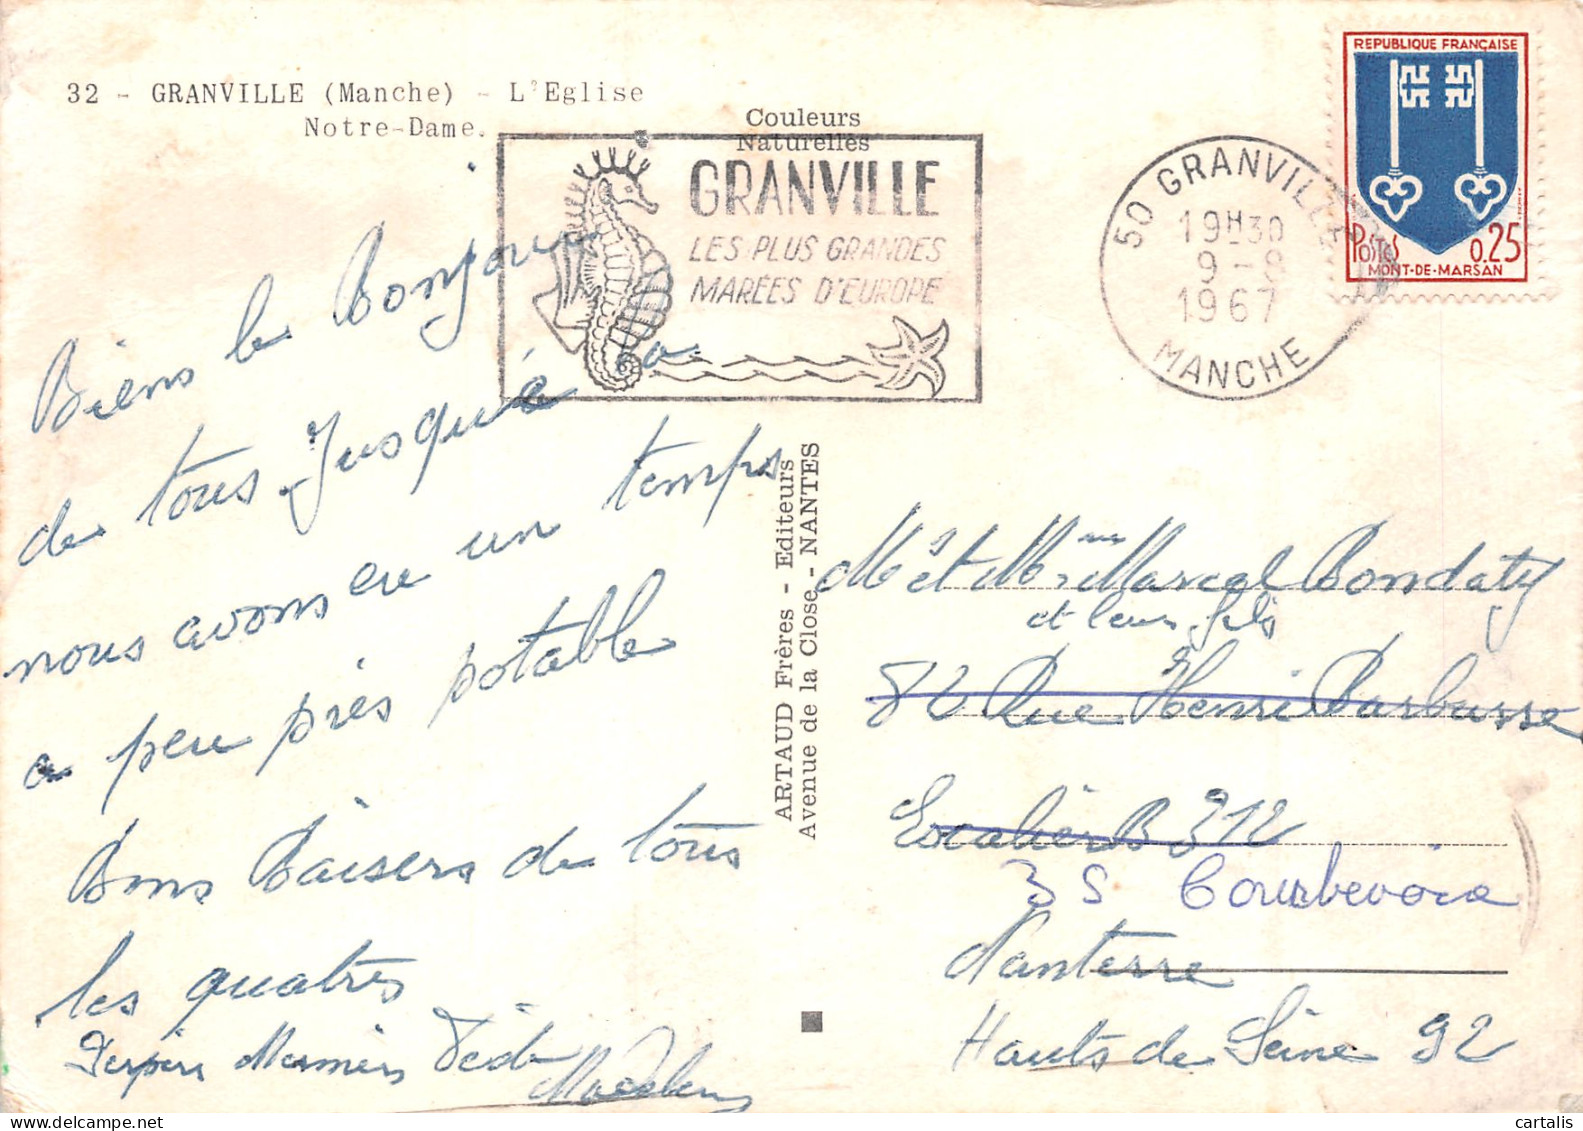 32 - GRANVILLE (Manche) - L'Eglise
Notre-Dame.
Couleurs
Naturelles
GRANVILLE
LES PLUS GRANDES
MARÉES D'EUROPE
50 GRANVILLE
19H30
9-9
1967
MANCHE
REPUBLIQUE FRANÇAISE
POSTES 0.25
MONT-DE-MARSAN
Biens le Bonjour
de tous Jusqu'é a
nous avons eu un temps
a peu près potable
Bons Baisers de tous
les quatres
ARTAUD Frères - Editeurs
Avenue de la Close - NANTES
Mr et Mme Marcel Bondaty
et leur fils
82 Rue Henri Barbusse
Escalier B 312
35 Courbevoie
Nanterre
Hauts de Seine 92
cartalis